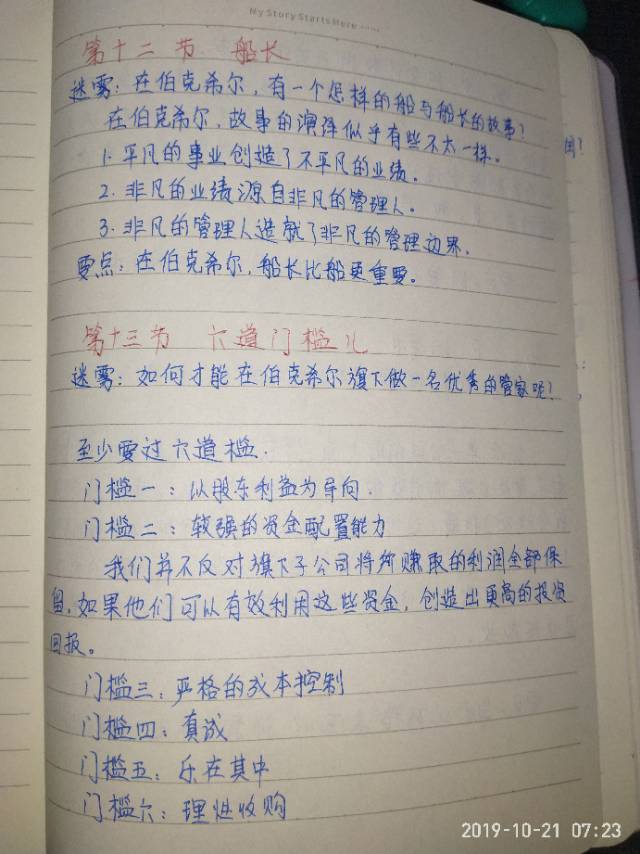 My Story Starts Here
第十二节 船长
迷雾：在伯克希尔，有一个怎样的船与船长的故事？
在伯克希尔，故事的演绎似乎有些不太一样。
1. 平凡的事业创造了不平凡的业绩。
2. 非凡的业绩源自非凡的管理人。
3. 非凡的管理人造就了非凡的管理边界。
要点：在伯克希尔，船长比船更重要。
第十三节 六道门槛儿
迷雾：如何才能在伯克希尔旗下做一名优秀的管家呢？
至少要过六道槛.
门槛一：以股东利益为导向.
门槛二：较强的资金配置能力
我们并不反对旗下子公司将所赚取的利润全部保
留，如果他们可以有效利用这些资金，创造出更高的投资
回报。
门槛三：严格的成本控制
门槛四：真诚
门槛五：乐在其中
门槛六：理性收购
2019-10-21 07:23